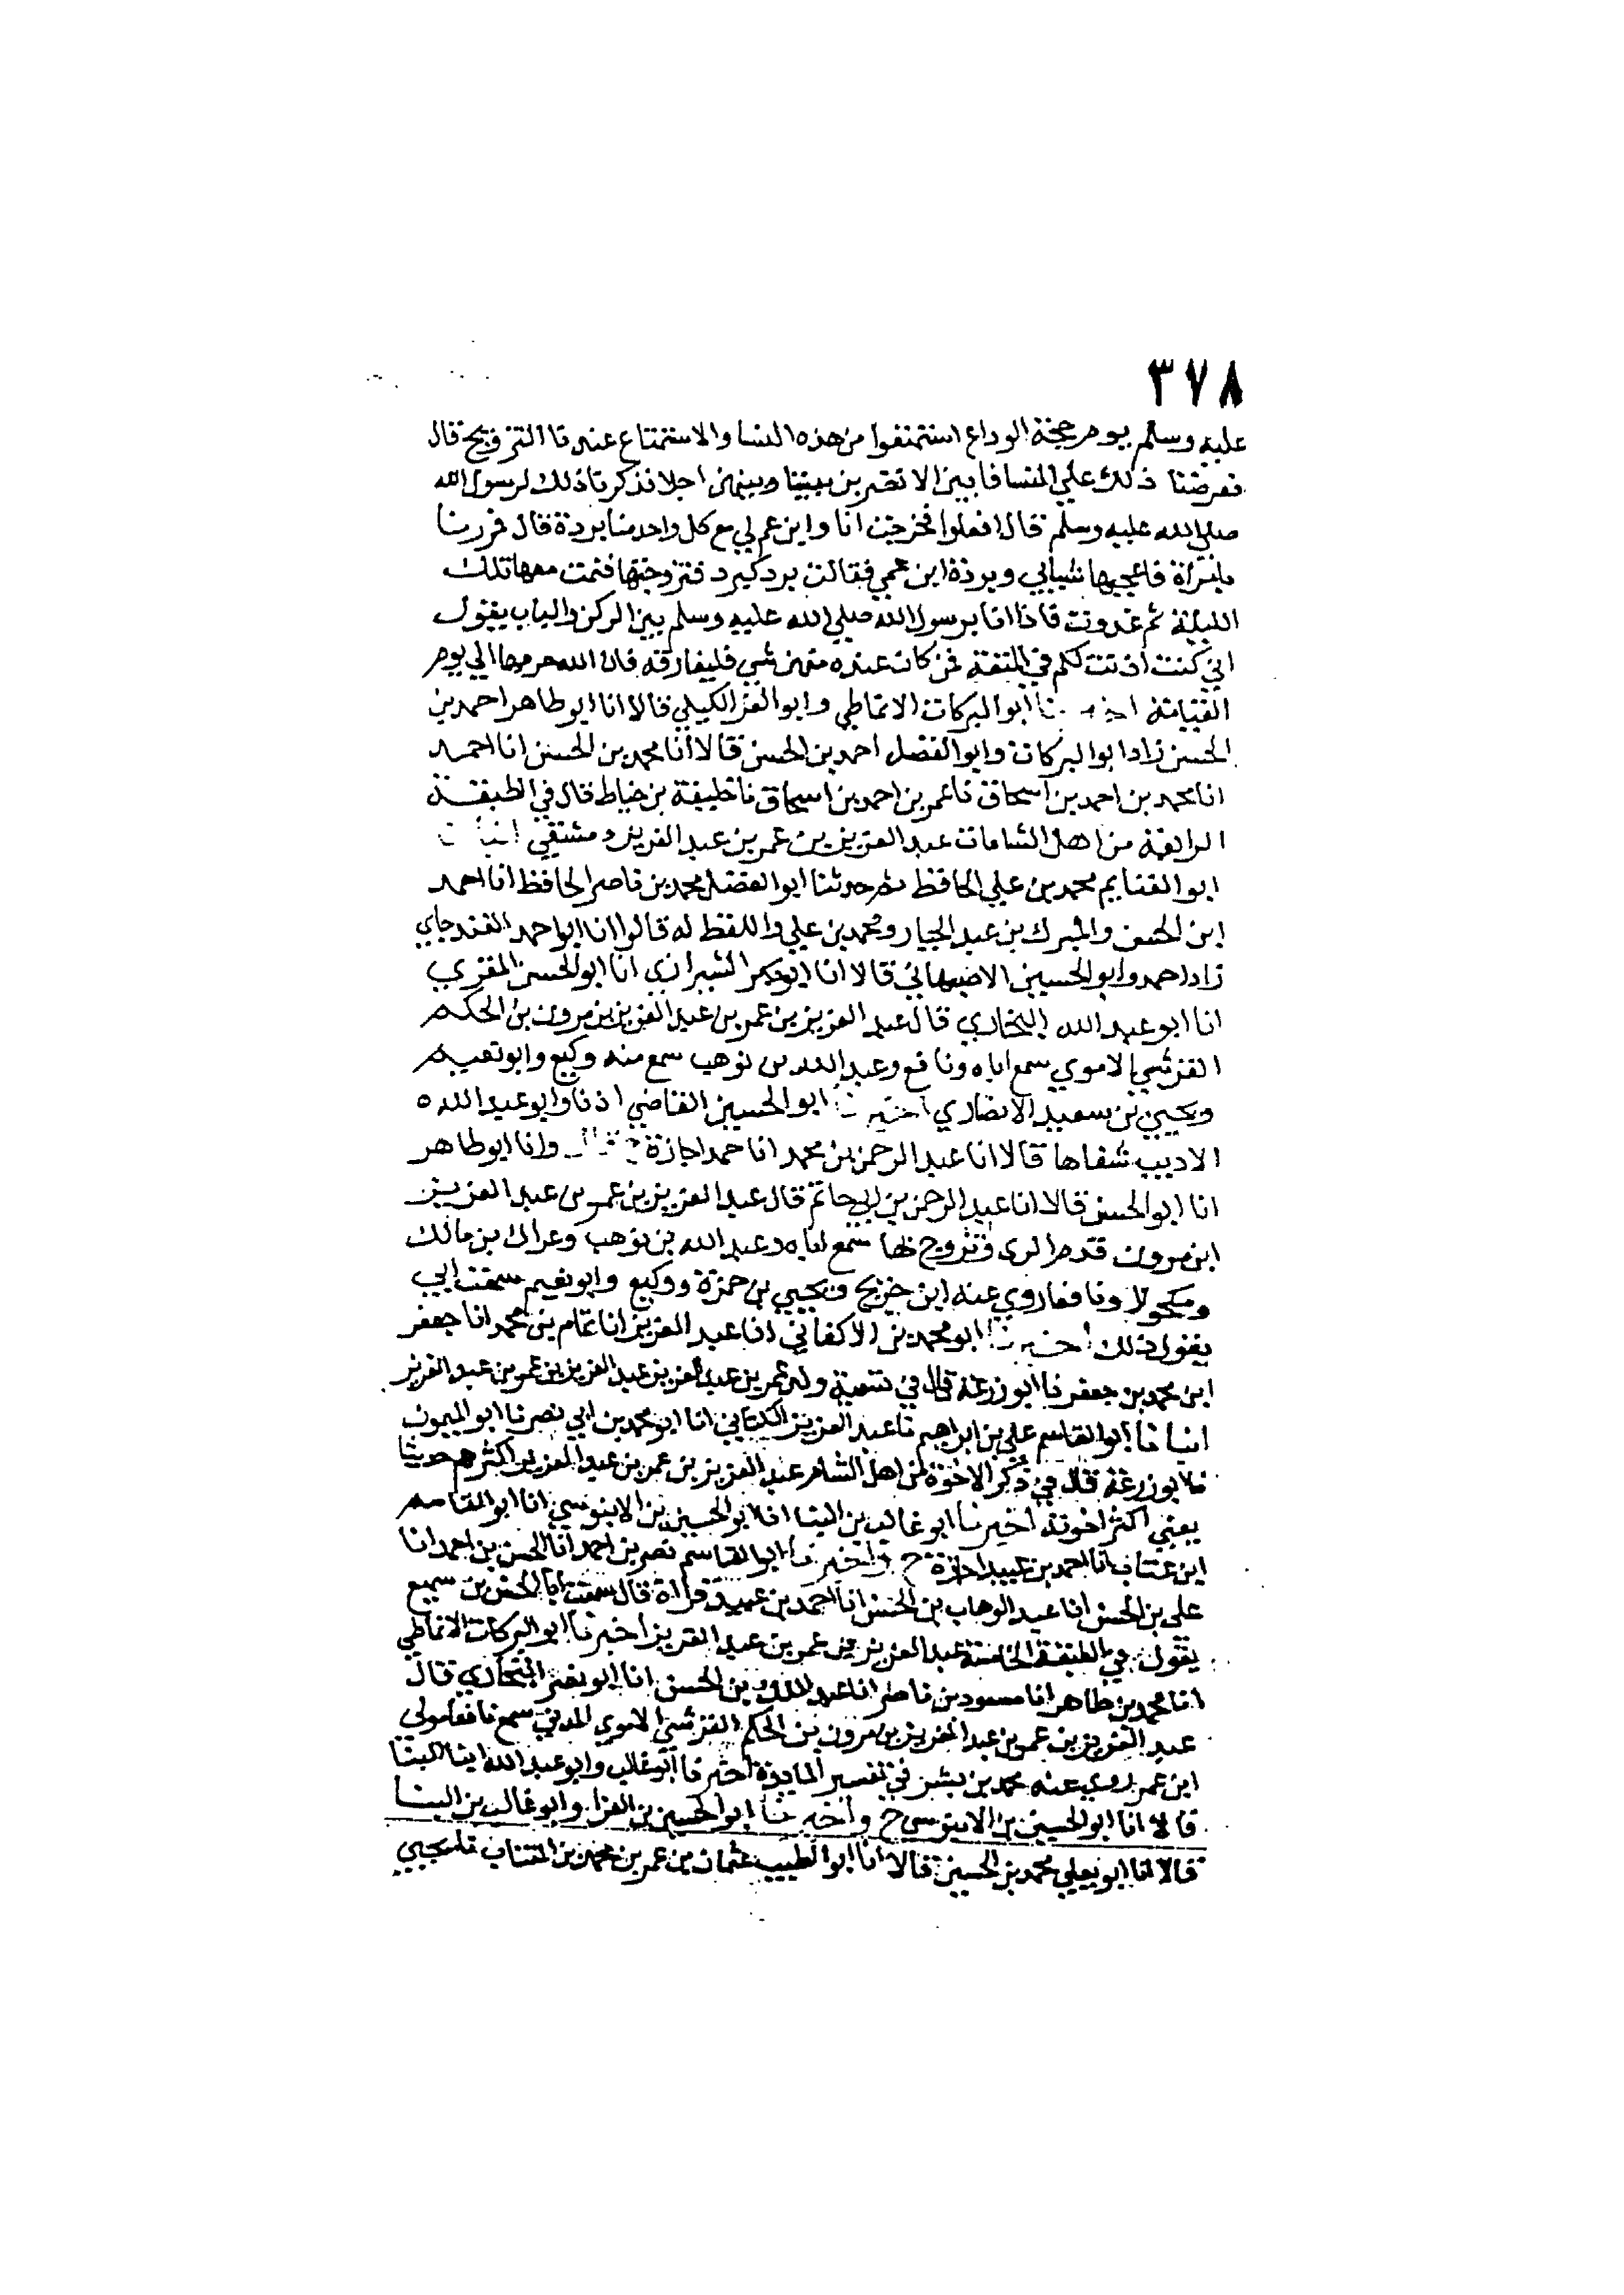 ٣٧٨
عليه وسلم يوم حجة الوداع استمتعوا من هذه النسا والاستمتاع عندنا التزويج قال
فعرضنا ذلك علي النسا فابين الا تضربن بيننا وبينهن اجلا فذكرنا ذلك لرسول الله
صلي الله عليه وسلم قال افعلوا فخرجت انا وابن عم لي مع كل واحد منا بردة قال فمررنا
بامراة فاعجبها شبابي وبردة ابن عمي فقالت برد كبرد فتزوجتها فنمت معها تلك
الليلة ثم غدوت فاذا انا برسول الله صلي الله عليه وسلم بين الركن والباب يقول
اني كنت اذنت لكم في المتعة فمن كان عنده منهن شي فليفارقه فان الله حرمها الي يوم
القيامة اخبرنا ابو البركات الانماطي وابو العز الكيلي قالا انا ابو طاهر احمد بن
الحسن زاد ابو البركات وابو الفضل احمد بن الحسن قالا انا محمد بن الحسن انا احمد
انا محمد بن احمد بن اسحاق نا عمر بن احمد بن اسحاق نا خليفة بن خياط قال في الطبقة
الرابعة من اهل الشامات عبد العزيز بن عمر بن عبد العزيز دمشقي انبانا
ابو الغنايم محمد بن علي الحافظ ثم حدثنا ابو الفضل محمد بن ناصر الحافظ انا احمد
ابن الحسن والمبرك بن عبد الجبار ومحمد بن علي واللفظ له قالوا انا ابو احمد الغندجاي
زاد احمد وابو الحسين الاصبهاني قالا انا ابو بكر الشيرازي انا ابو الحسن المقري
انا ابو عبد الله البخاري قال عبد العزيز بن عمر بن عبد العزيز بن مرون بن الحكم
القرشي الاموي سمع اباه ونافع وعبد الله بن نوهب سمع منه وكيع وابو نعيم
ويحيي بن سعيد الانصاري اخبرنا ابو الحسين القاضي اذنا وابو عبد الله
الاديب شفاها قالا انا عبد الرحمن بن محمد انا حمد اجازة ح قال وانا ابو طاهر
انا ابو الحسن قالا انا عبد الرحمن بن ابي حاتم قال عبد العزيز بن عمر بن عبد العزيز
ابن مرون قدم الري وتزوج بها سمع اباه وعبد الله بن نوهب وعراك بن مالك
ومكحولا ونافعا روي عنه ابن جريج ويحيي بن حمزة ووكيع وابو نعيم سمعت ابي
يقول ذلك اخبرنا ابو محمد بن الاكفاني انا عبد العزيز انا تمام بن محمد انا جعفر
ابن محمد بن جعفر نا ابو زرعة قال في تسمية ولد عمر بن عبد العزيز عبد العزيز بن عمر بن عبد العزيز
انبانا ابو القاسم علي بن ابراهيم نا عبد العزيز الكتاني انا ابو محمد بن ابي نصر نا ابو الميمون
نا ابو زرعة قال في ذكر الاخوة من اهل الشام عبد العزيز بن عمر بن عبد العزيز اكثرهم حديثا
يعني اكثر اخوته اخبرنا ابو غالب بن البنا انا ابو الحسين بن الابنوسي انا ابو القاسم
ابن عتاب انا احمد بن عبيد اجازة ح واخبرنا ابو القاسم نصر بن احمد انا الحسن بن احمد انا
علي بن الحسن انا عبد الوهاب بن الحسن انا احمد بن عمير قراة قال سمعت ابا الحسن بن سميع
يقول في الطبقة الخامسة عبد العزيز بن عمر بن عبد العزيز اخبرنا ابو البركات الانماطي
انا محمد بن طاهر انا مسعود بن ناصر انا عبد الملك بن الحسن انا ابو نصر البخاري قال
عبد العزيز بن عمر بن عبد العزيز بن مرون بن الحكم القرشي الاموي المدني سمع نافعا مولي
ابن عمر روي عنه محمد بن بشر في تفسير المايدة اخبرنا ابو غالب وابو عبد الله ابنا البنا
قالا انا ابو الحسين بن الابنوسي ح واخبرنا ابو الحسين بن الفرا وابو غالب بن البنا
قالا انا ابو يعلي محمد بن الحسين قالا انا ابو الطيب عثمان بن عمر بن محمد بن المنتاب نا يحيي